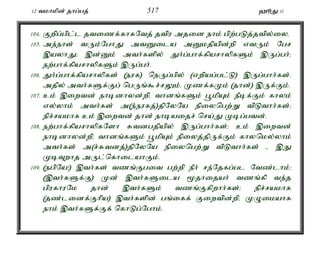 12 வமாமின் தாப்பத் 517 ஹூது 11
104. குறிப்பிட்ட தவணைக்காகவேத் தவிர அதனை நாம் பிற்படுத்தவில்லை.
105. அந்நாள் வரும்போது அவனுடைய அனுமதியின்றி எவரும் பேச
இயலாது; இன்னும் அவர்களில் துர்ப்பாக்கியசாலிகளும் இருப்பர்;
நற்பாக்கியசாலிகளும் இருப்பர்.
106. துர்ப்பாக்கியசாலிகள் (நரக) நெருப்பில் (எறியப்பட்டு) இருப்பார்கள்.
அதில் அவர்களுக்குப் பெருங்கூச்சலும், முணக்கமும் (தான்) இருக்கும்.
107. உம் இறைவன் நாடினாலன்றி, வானங்களும் பூமியும் நீடிக்கும் காலம்
எல்லாம் அவர்கள் அ(ந்நரகத்)திலேயே நிலைபெற்று விடுவார்கள்;
நிச்சயமாக உம் இறைவன் தான் நாடியதைச் செய்து முடிப்பவன்.
108. நற்பாக்கியசாலிகளோ சுவனபதியில் இருப்பார்கள்; உம் இறைவன்
நாடினாலன்றி, வானங்களும் பூமியும் நிலைத்திருக்கும் காலமெல்லாம்
அவர்கள் அ(ச்சுவனத்)திலேயே நிலைபெற்று விடுவார்கள் - இது
முடிவுறாத அருட்கொடையாகும்.
109. (நபியே!) இவர்கள் வணங்குபவை பற்றி நீர் சந்தேகப்பட வேண்டாம்;
(இவர்களுக்கு) முன் இவர்களுடைய மூதாதையர் வணங்கி வந்த
பிரகாரமே தான் இவர்களும் வணங்குகிறார்கள்; நிச்சயமாக
(தண்டனைக்குரிய) இவர்களின் பங்கைக் குறைவின்றி, முழுமையாக
நாம் இவர்களுக்குக் கொடுப்போம்.